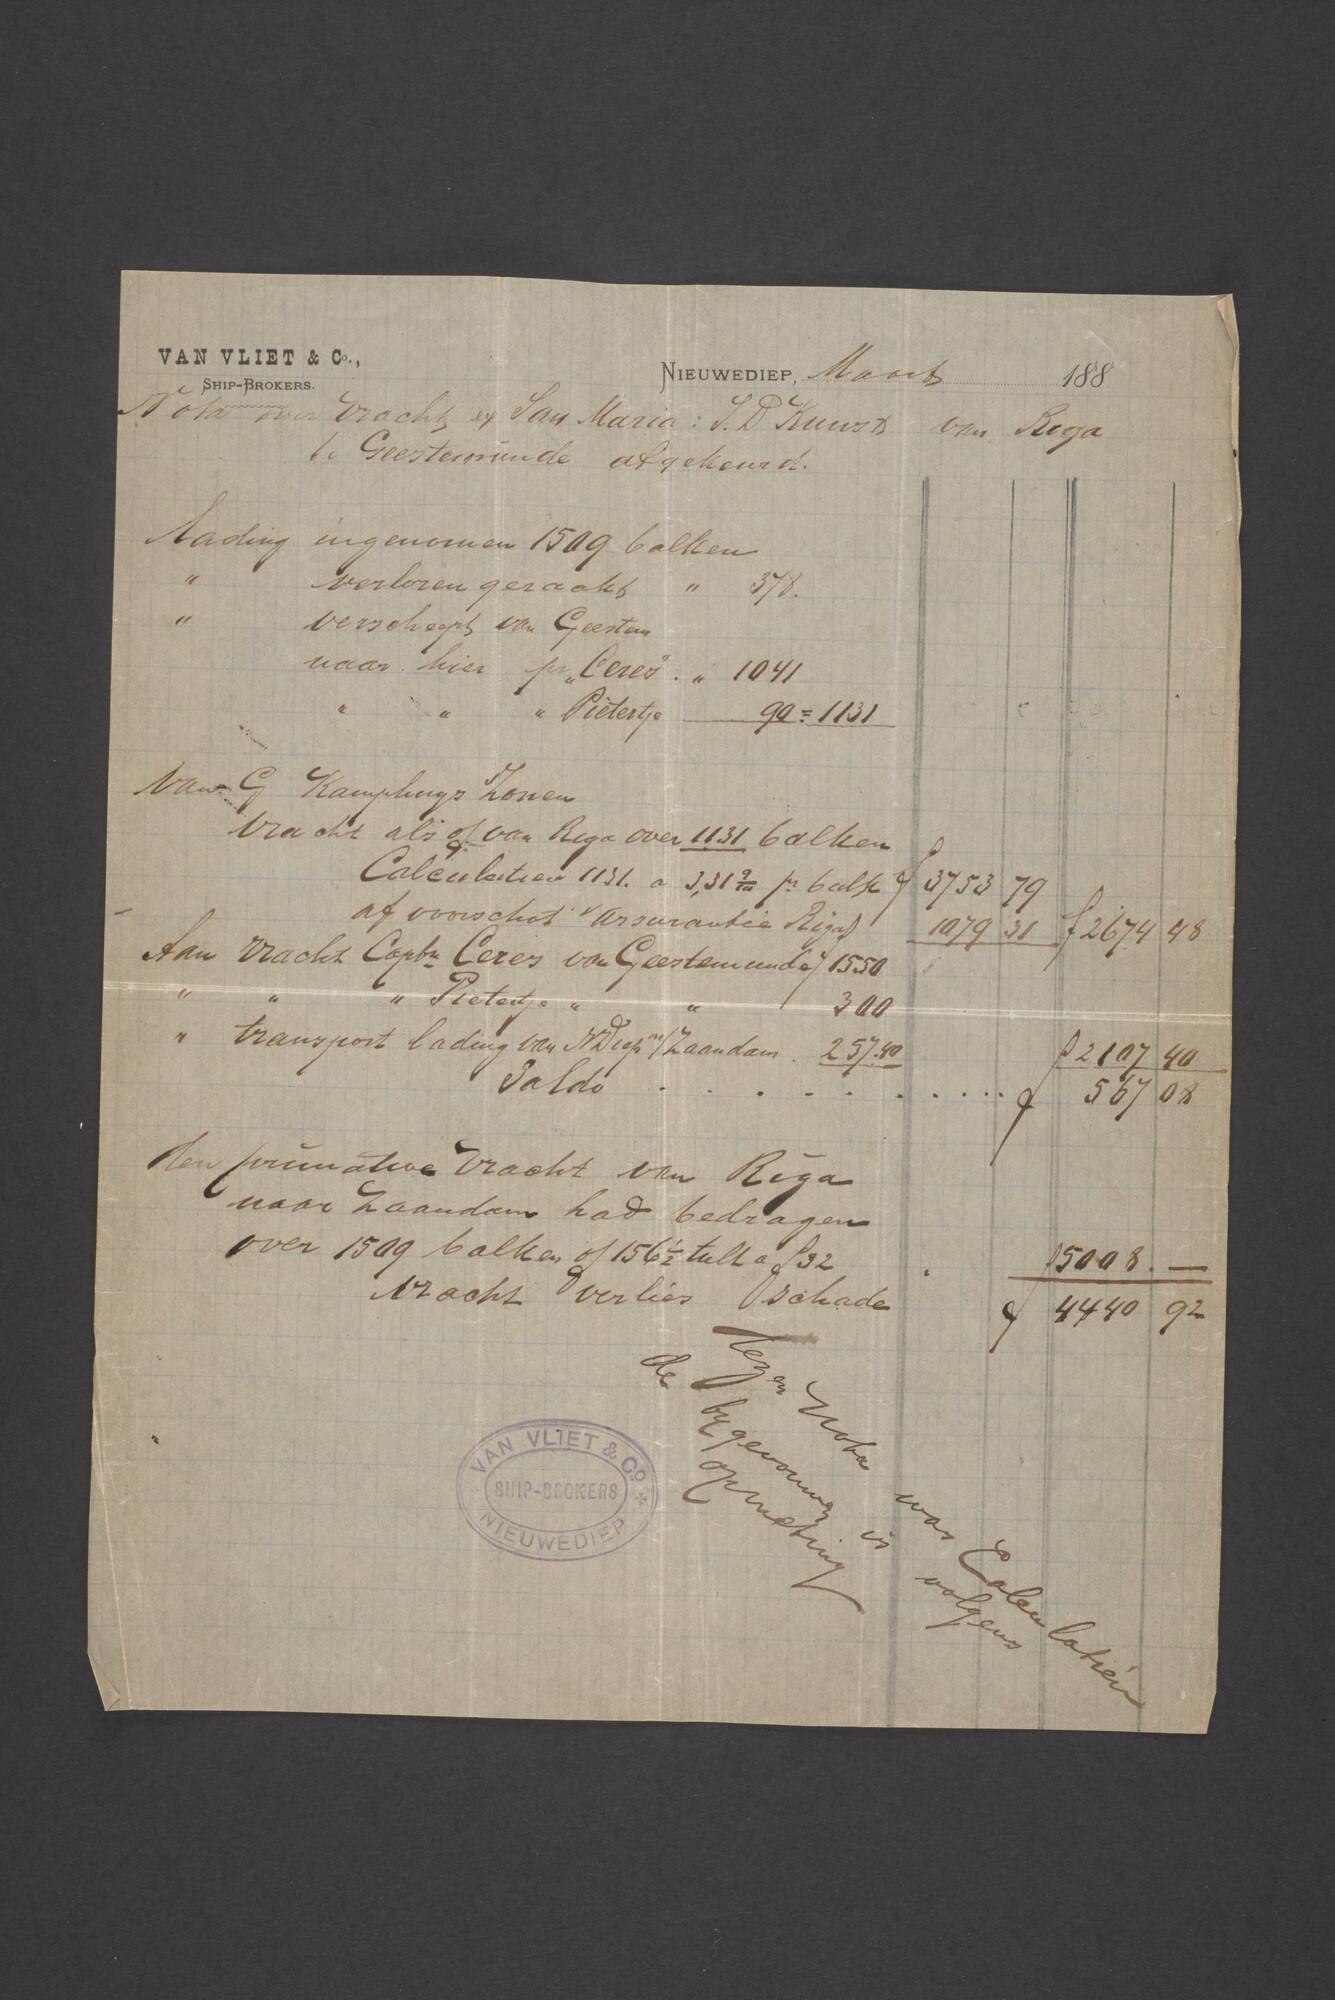 VAN VLIET & Co.,
SHIP-BROKERS.
NIEUWEDIEP, Maart 188
Nota over Vracht ex San Maria: S. D Kunst van Riga
te Geestemunde afgekeurd.
Lading ingenomen 1509 balken
" verloren geraakt " 378.
" verscheept van Geestem
naar hier pr „Ceres" . " 1041
" " " Pietertje 90 = 1131
Van G Kamphuys Zonen
Vracht als of van Riga over 1131 balken
Calculatien 1131. a 3,31 9/10 pr balk f 3753 79
af voorschot & assurantie Riga 1079 31 f 2674 48
Aan Vracht Captn Ceres van Geestemunde f 1550
" " " Pietertje " " 300
" transport lading van NDiep n/ Zaandam . 257.40 f 2107 40
Saldo . . . . . . . . . . . f 567 08
den primative Vracht van Riga
naar Zaandam had bedragen
over 1509 balken of 156½ tult a f 32 . f 5008. —
Vracht verlies schade f 4440 92
Dezen Nota was Calculatien
de bygevoegde is volgens
opmeting
VAN VLIET & Co.
SHIP-BROKERS
NIEUWEDIEP